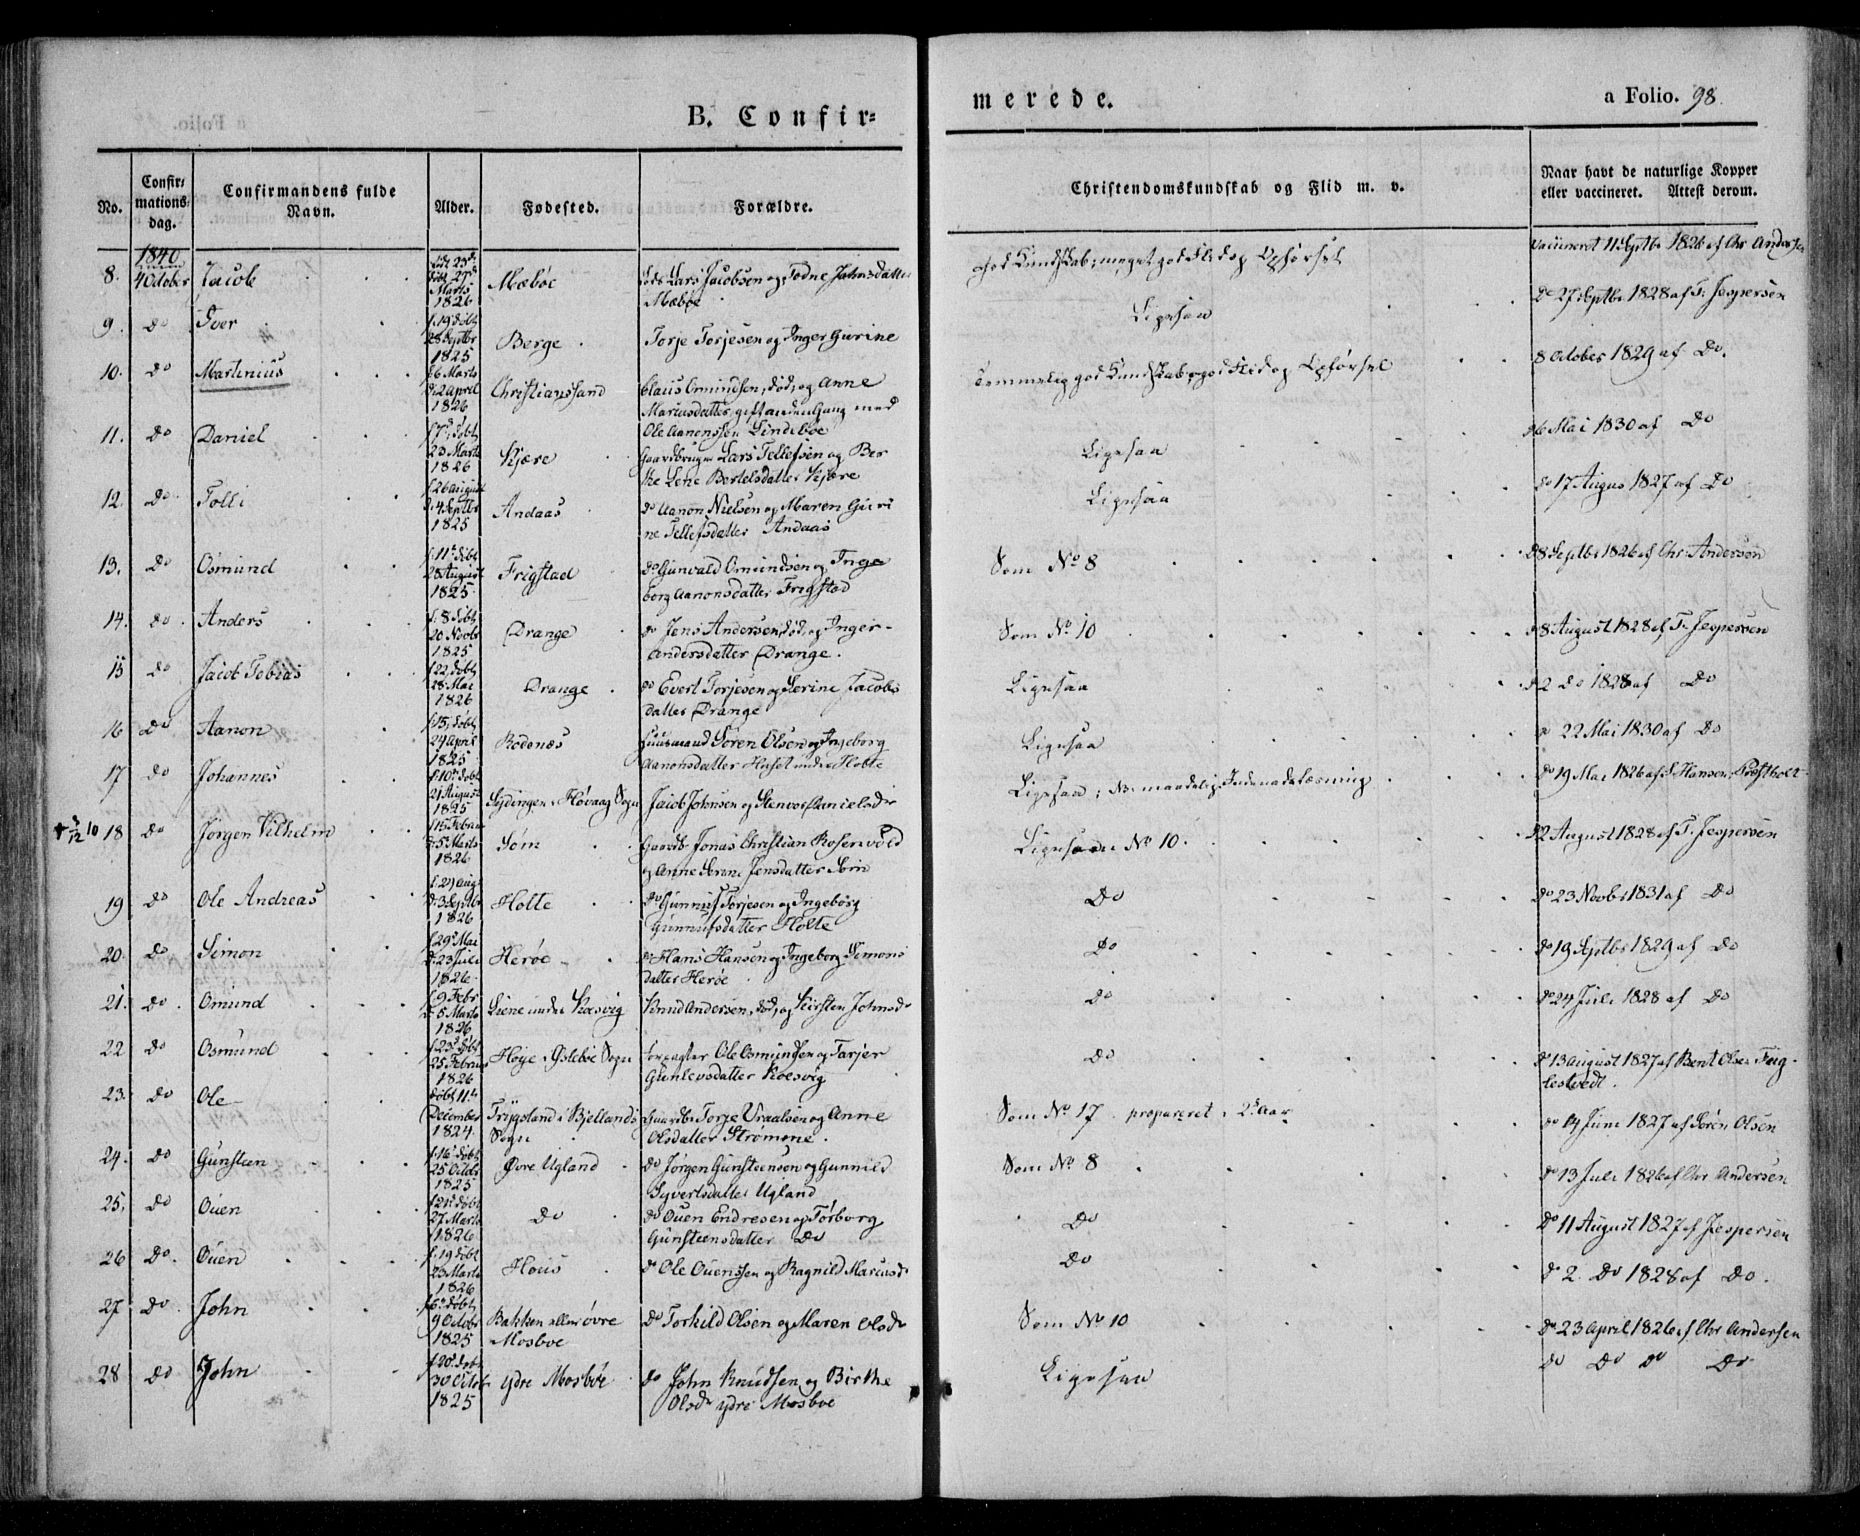 B. Confir=
merede.
a Folio. 98
No.
Confir=
mations=
dag.
Confirmandens fulde
Navn.
Alder.
Fødested.
Forældre.
Christendomskundskab og Flid m. v.
Naar havt de naturlige Kopper
eller vaccineret. Attest derom.
1840
8. 4 October Jacob Marts 1826 Mæbøe Lars Jacobsen og Todne Jahnsdatter
Mæbøe
god Kundskab, meget god Flid og Opførsel
vaccineret 11 Septbr 1826 af Chr Andersen
9. Do Iver f. 19 døbt
28 Septbr
1825 Berge Torje Torjesen og Inger Gurine
Ligesaa
Do 27 Septbr 1828 af T. Jespersen
10. Do Martinius f. 6 Marts
d. 2 April
1826 Christianssand Claus Omundsen, død, og Anne
Mariusdatter, gift anden Gang med
Ole Aanonssen Lindebøe
Temmelig god Kundskab, god Flid og Opførsel
8 October 1829 af Do.
11. Do Daniel f. 7, døbt
23 Marts
1826 Kjære Gaardbruger Lars Tellefsen og Ber
the Lene Bertelsdatter Kjære
Ligesaa
6 Mai 1830 af Do
12. Do Tolli f. 26 August
d. 4 Septbr
1825 Andaas Do Aanon Nielsen og Maren Guri
ne Tellefsdatter Andaas
Ligesaa
Do 17 Augus 1827 af Do
13. Do Osmund f. 11 døbt
28 August
1825 Frigstad Do Gunvald Omundsen og Inge
borg Aanonsdatter Frigstad
Som No 8
8 Septbr 1826 af Chr. Andersen
14. Do Anders f. 8 døbt
20 Novbr
1825 Drange Do Jens Andersen, død, og Inger
Andersdatter Drange.
Som No 10
8 August 1828 af T. Jespersen
15 Do Jacob Tobias f. 22, døbt
28 Mai
1826 Drange Do Evert Torjesen og Serine Jacobs
datter Drange
Ligesaa
2 Do 1828 af Do
16 Do Aanon f. 15, døbt
24 April
1825 Rodenæs Huusmand Søren Olsen og Ingeborg
Aanonsdatter Huset under Holte
Ligesaa
22 Mai 1830 af Do
17 Do Johannes f. 10 døbt
21 August
1825 Høvaag Sogn Jacob Johnsen og
Ligesaa; No. maadelig Indenadslæsning
Do 19 Mai 1826 af S Hansen
+ 3/12 10 18 Do Jørgen Vilhelm f. 15 Februar
d. 5 Marts
1826 Søm Gaardb. Jonas Christian Rosenvold
og Anne Jensdatter Søm
Ligesom No 10.
2 August 1828 af T. Jespersen
19 Do Ole Andreas
d. 3 Septbr
1826 Holte Do Gunnuf Torjesen og Ingeborg
Gunnufsdatter Holte
Do
Do 23 Novbr 1831 af Do
20. Do Simon f. 29 Mai
d. 23 Juli
1826 Herøe Do Hans Hansen og Ingeborg Simons
datter Herøe
Do
Do 19 Septbr 1829 af Do
21. Do Omund f. 9 Febr
d. 5 Marts
1826 Liene under Koesvig Knud Andersen, død, og Kirsten Johnsd.
Do
Do 24 Juli 1828 af Do
22 Do Osmund f. 23 døbt
25 Februar
1826 Høye i Øslebøe Sogn Forpagter Ole Osmundsen og Tarjer
Gunlevsdatter Koesvig
Do
Do 13 August 1827 af Bent Olsen Fug-
lestvedt.
23. Do Ole døbt 11
December
1824. Trygsland i Bjellands
Sogn Gaardbr. Torje Vraalsen og Anne
Olsdatter Strømene.
Som No 17 præpareret i 2 Aar
Do 14 Juni 1827 af Søren Olsen
24. Do Gunsteen f. 16 døbt
25 Octbr
1825 Øvre Ugland Do Jørgen Gunsteensen og Gunnild
Syvertsdatter Ugland
Som No 8
Do 13 Juli 1826 af Chr Andersen
25. Do Ouen f. 21 døbt
27 Marts
1826 Do Do Ouen Endresen og Torborg
Gunsteensdatter Do
Do
Do 11 August 1827 af Jespersen
26 Do Ouen f. 19 døbt
23 Marts
1826 Høiis Do Ole Ouenssen og Ragnild Mariusd.
Do
Do 2. Do 1828 af Do.
27 Do John f. 6 døbt
9 Octobr
1825 Bakken eller øvre
Mosbøe Do Torkild Olsen og Maren Olsd.
Som No 10
Do 23 April 1826 af Chr Andersen
28 Do John f. 20 døbt
30 Octob
1825 ydre Mosbøe Do John Knudsen og Birthe
Olsd. ydre Mosbøe
Ligesaa
Do Do Do Do